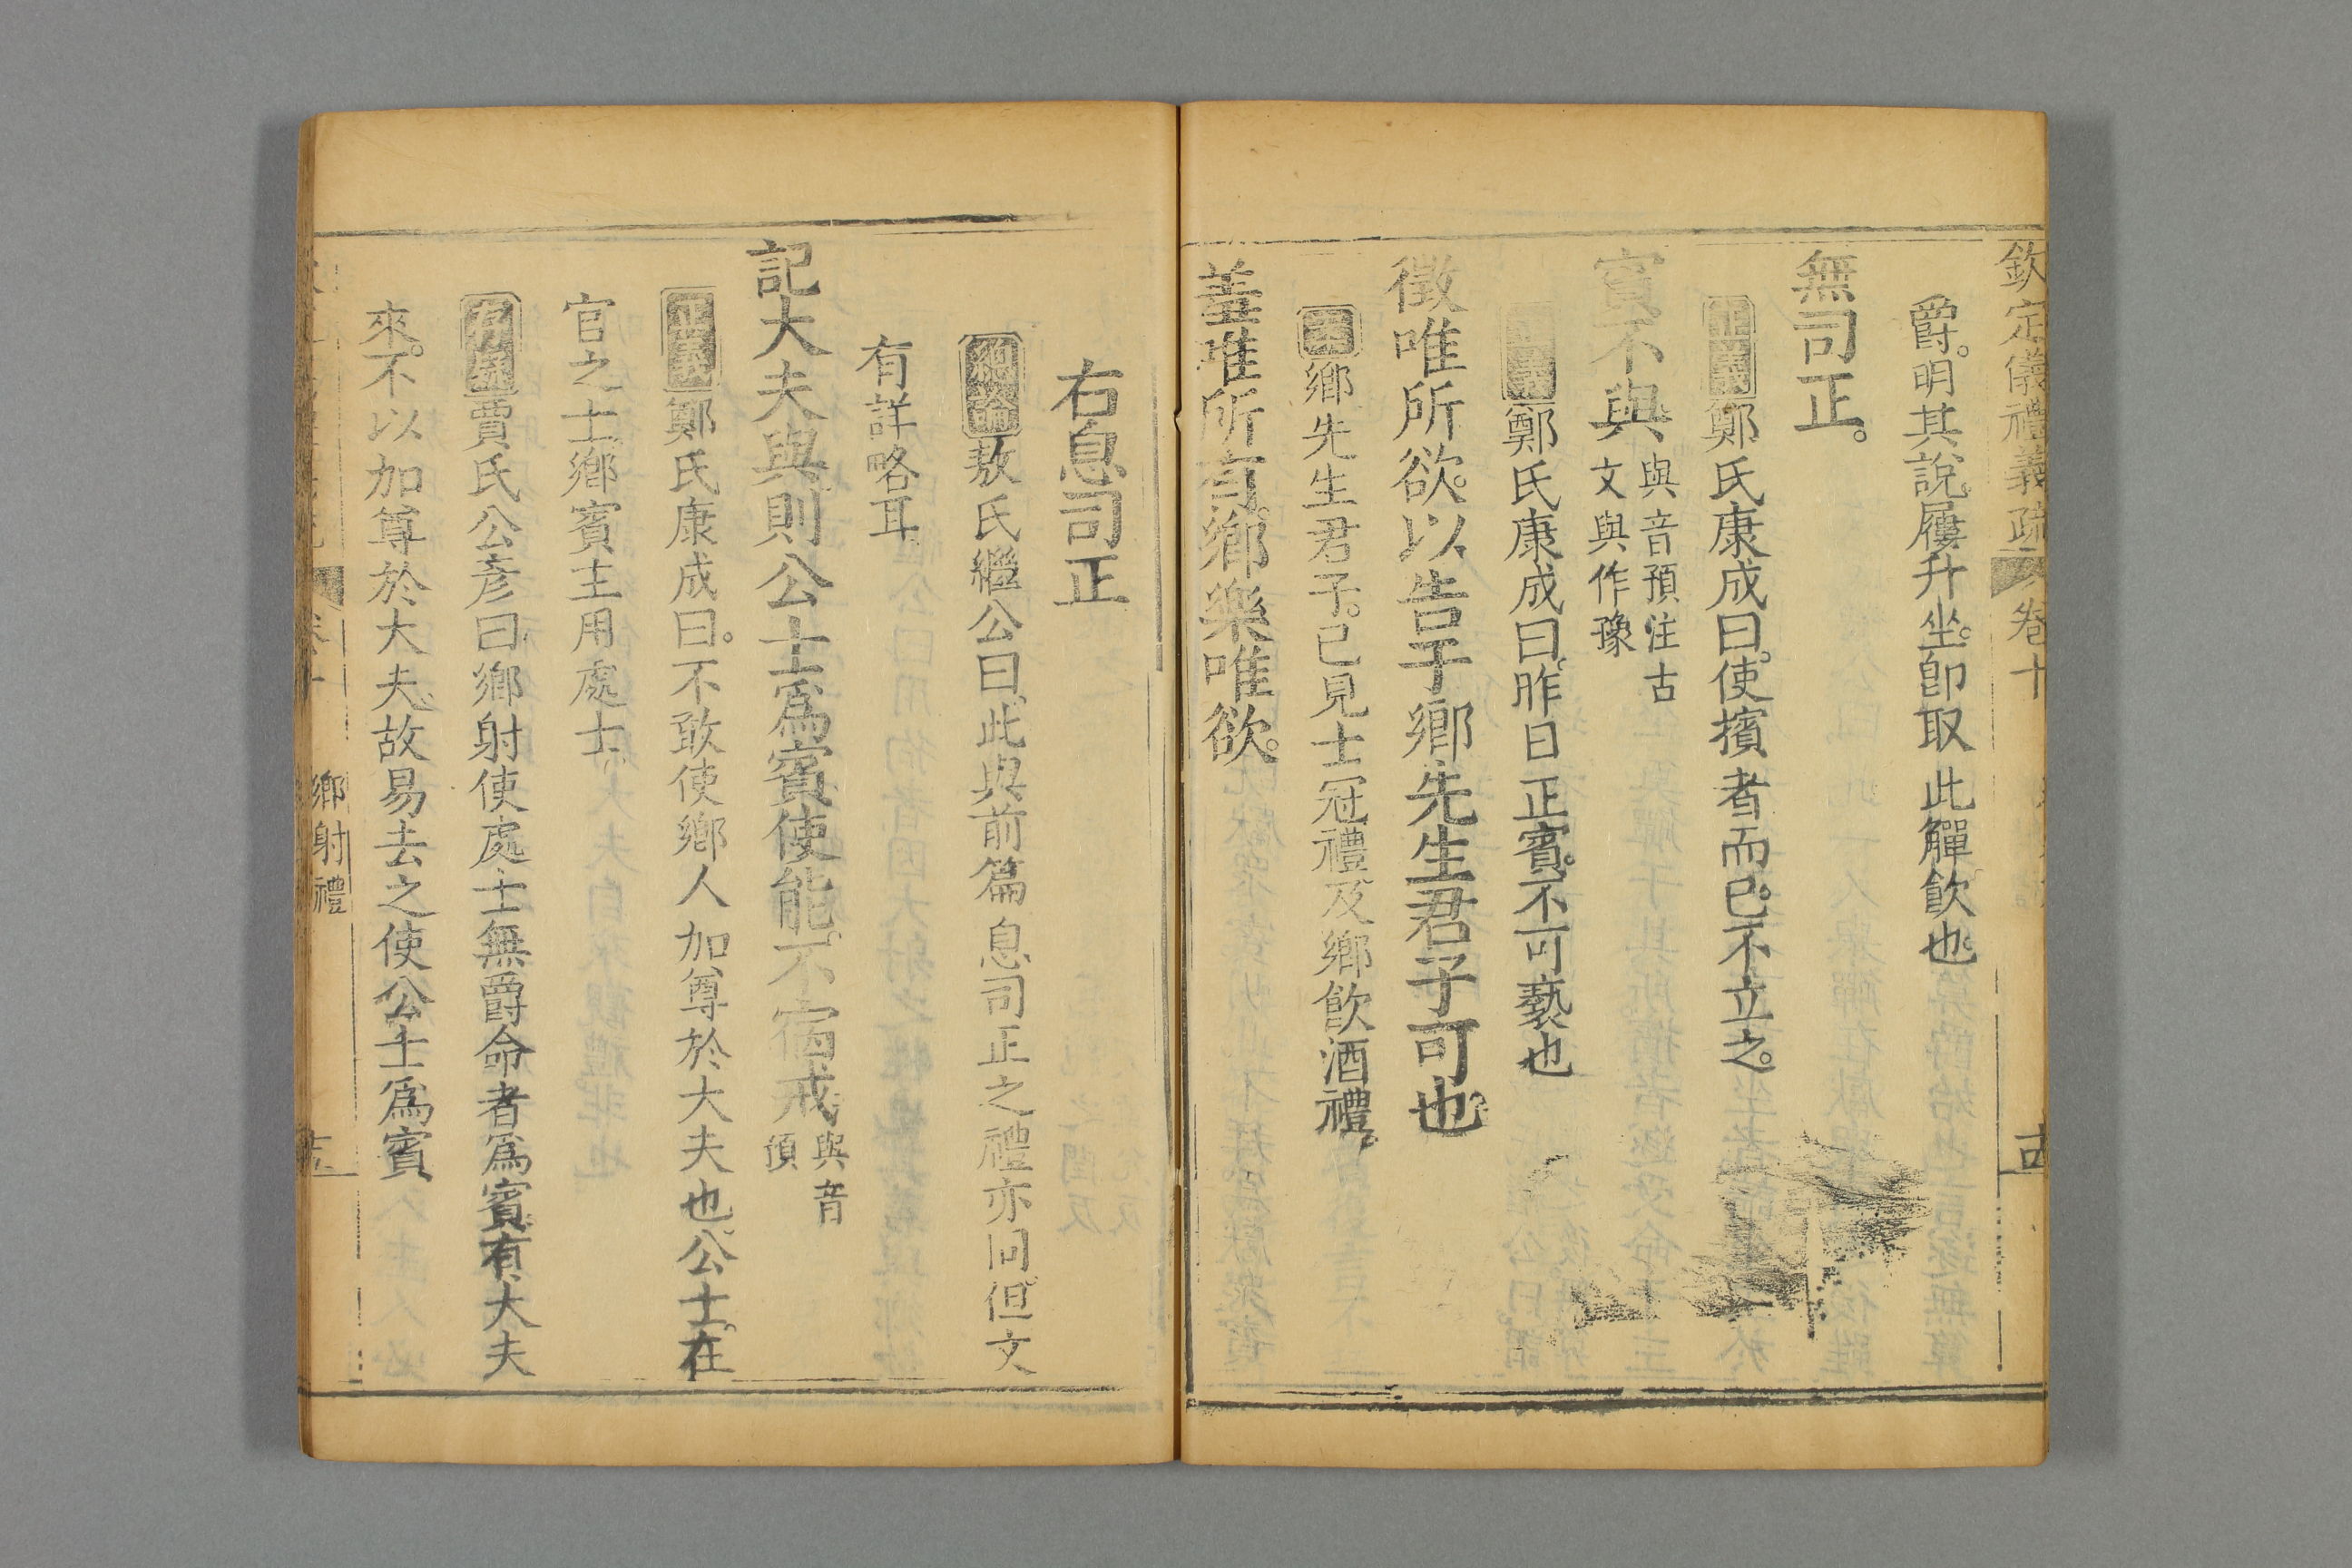 欽定儀禮義疏 卷十
爵。明其說屨升坐。卽取此觶飲也。
無司正。
正義鄭氏康成曰。使擯者而已。不立之。
賓不與與音預注古文與作豫
正義鄭氏康成曰。昨日正賓。不可褻也
徵唯所欲。以告于鄉先生君子可也。
鄉先生君子。已見士冠禮及鄉飲酒禮。
羞唯所有。鄉樂唯欲。
右息司正
總論敖氏繼公曰。此與前篇息司正之禮亦同。但文
有詳略耳
記大夫與則公士爲賓使能。不宿戒與音預
正義鄭氏康成曰。不敢使鄉人加尊於大夫也。公士。在
官之士。鄉賓主用處士。
存疑賈氏公彥曰。鄉射使處士無爵命者爲賓。有大夫
來。不以加尊於大夫。故易去之。使公士爲賓
鄉射禮